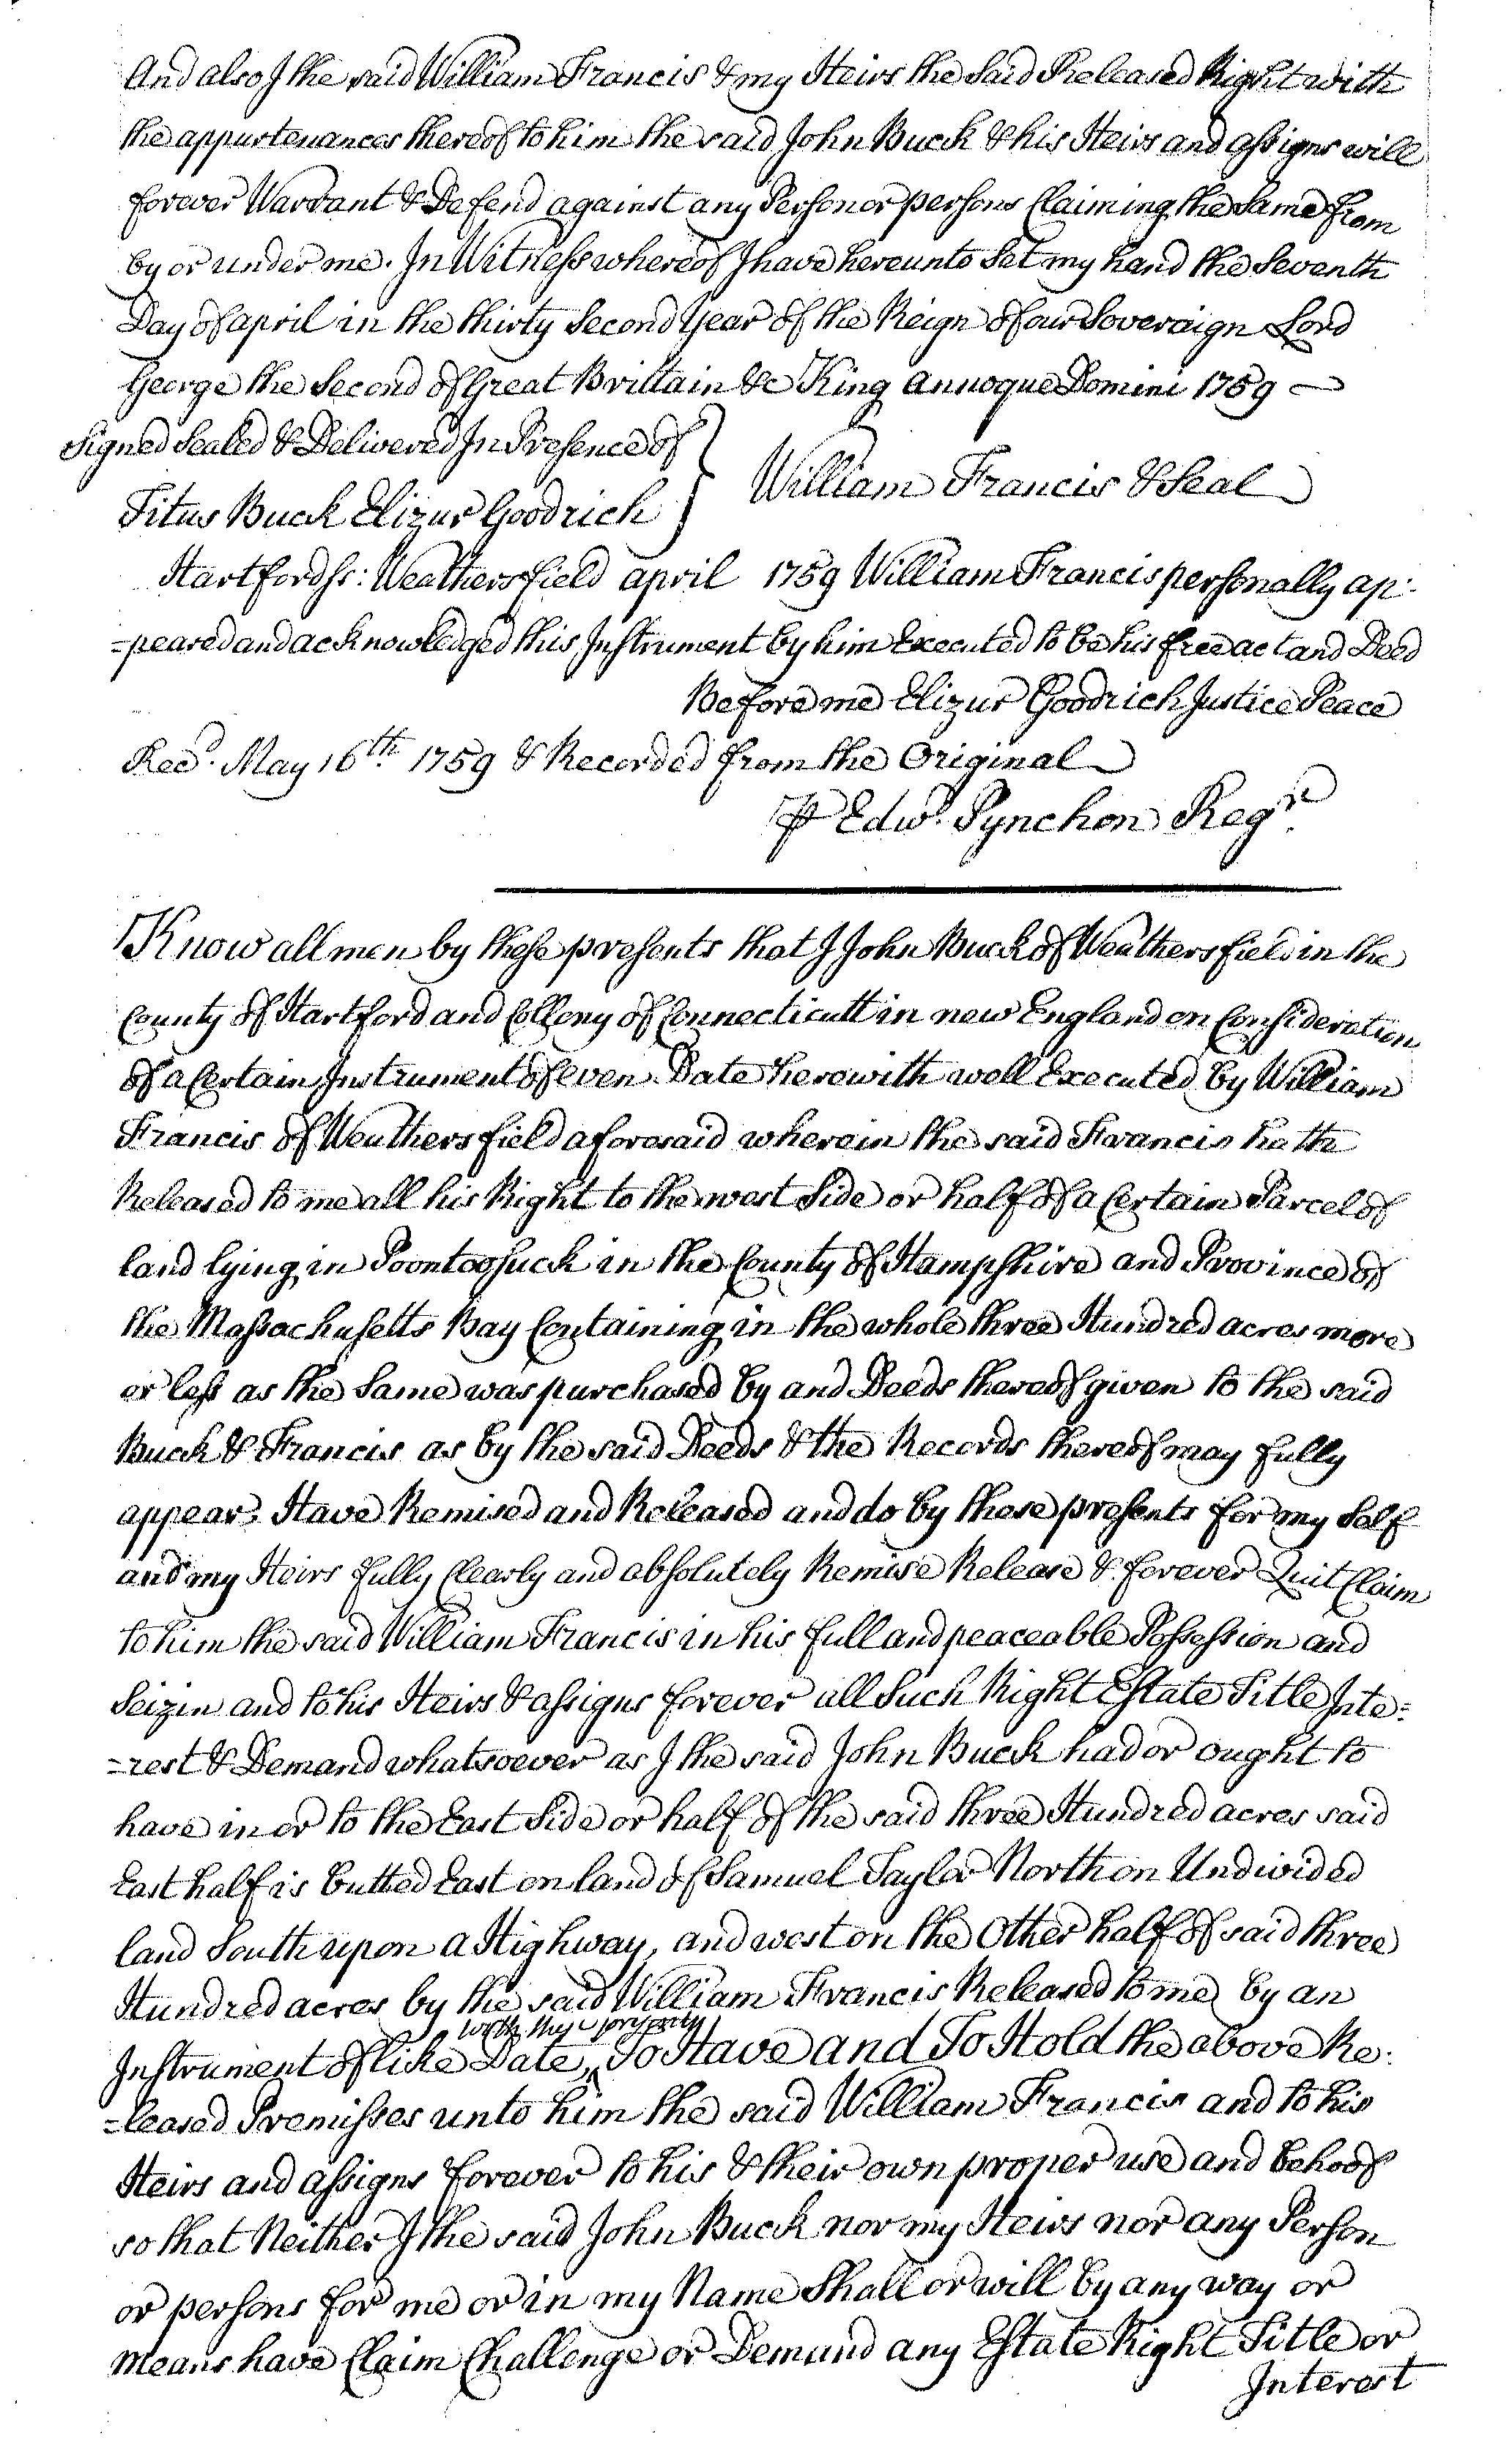 And also I the said William Francis & my Heirs the Said Released Right with
the appurtenances thereof to him the said John Buck & his Heirs and assigns will
forever Warrant & Defend against any Person or persons Claiming the Same from
by or under me. In Witness whereof I have hereunto Set my hand the Seventh
Day of april in the thirty Second Year of the Reign of our Sovereign Lord
George the Second of Great Brittain &c King annoque Domini 1759
Signed Sealed & Delivered In Presence of
William Francis & Seal
Titus Buck Elizur Goodrich
Hartford ss: Weathersfield april 1759 William Francis personally ap-
=peared and acknowledged this Instrument by him Executed to be his free act and Deed
Before me Elizur Goodrich Justice Peace
Recd. May 16th 1759 & Recorded from the Original
⅌ Edwd. Pynchon Regr.
Know all men by these presents that I John Buck of Weathersfield in the
County of Hartford and Collony of Connecticutt in new England on Consideration
of a Certain Instrument of even Date herewith well Executed by William
Francis of Weathersfield aforesaid wherein the said Francis hath
Released to me all his Right to the west Side or half of a Certain Parcel of
land lying in Poontoosuck in the County of Hampshire and Province of
the Massachusetts Bay Containing in the whole three Hundred acres more
or less as the Same was purchased by and Deeds thereof given to the said
Buck & Francis as by the said Deeds & the Records thereof may fully
appear. Have Remised and Released and do by these presents for my Self
and my Heirs fully Clearly and absolutely Remise Release & forever Quit Claim
to him the said William Francis in his full and peaceable Possession and
Seizin and to his Heirs & assigns forever all Such Right Estate Title Inte=
=rest & Demand whatsoever as I the said John Buck had or ought to
have in or to the East Side or half of the said three Hundred acres said
East half is butted East on land of Samuel Taylor North on Undivided
land South upon a Highway, and west on the Other half of said three
Hundred acres by the said William Francis Released to me by an
Instrument of like Date, To Have and To Hold the above Re-
=leased Premisses unto him the said William Francis and to his
Heirs and assigns forever to his & their own proper use and behoof
so that Neither I the said John Buck nor my Heirs nor any Person
or persons for me or in my Name Shall or will by any way or
means have Claim Challenge or Demand any Estate Right Title or
Interest